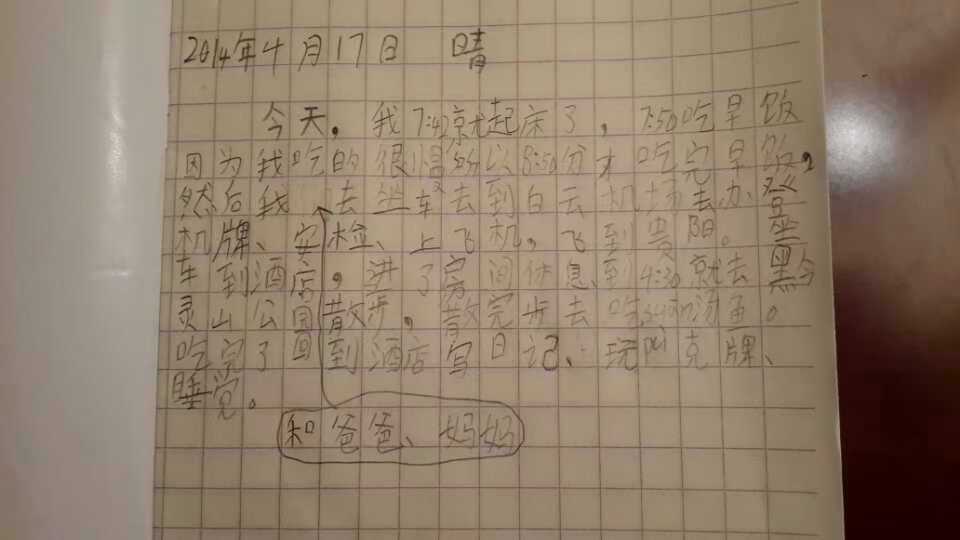 2014年4月17日 晴
今天，我7:42就起床了，7:50吃早饭
因为我吃的很慢所以8:50分才吃完早饭，
然后我去坐车去到白云机场去办登
机牌、安检、上飞机，飞到贵阳。坐
车到酒店，进了房间休息、到4:30就去黔
灵山公园散步，散完步去吃suan汤鱼。
吃完了回到酒店写日记、玩pu克牌、
睡觉。
和爸爸、妈妈